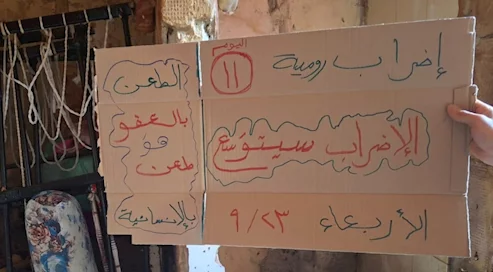 إضراب رومية
اليوم
١١
الإضراب سيتوسّع
الأربعاء ٩/٢٣
الطعن
بالعفو
هو
طعن
بالإنسانية